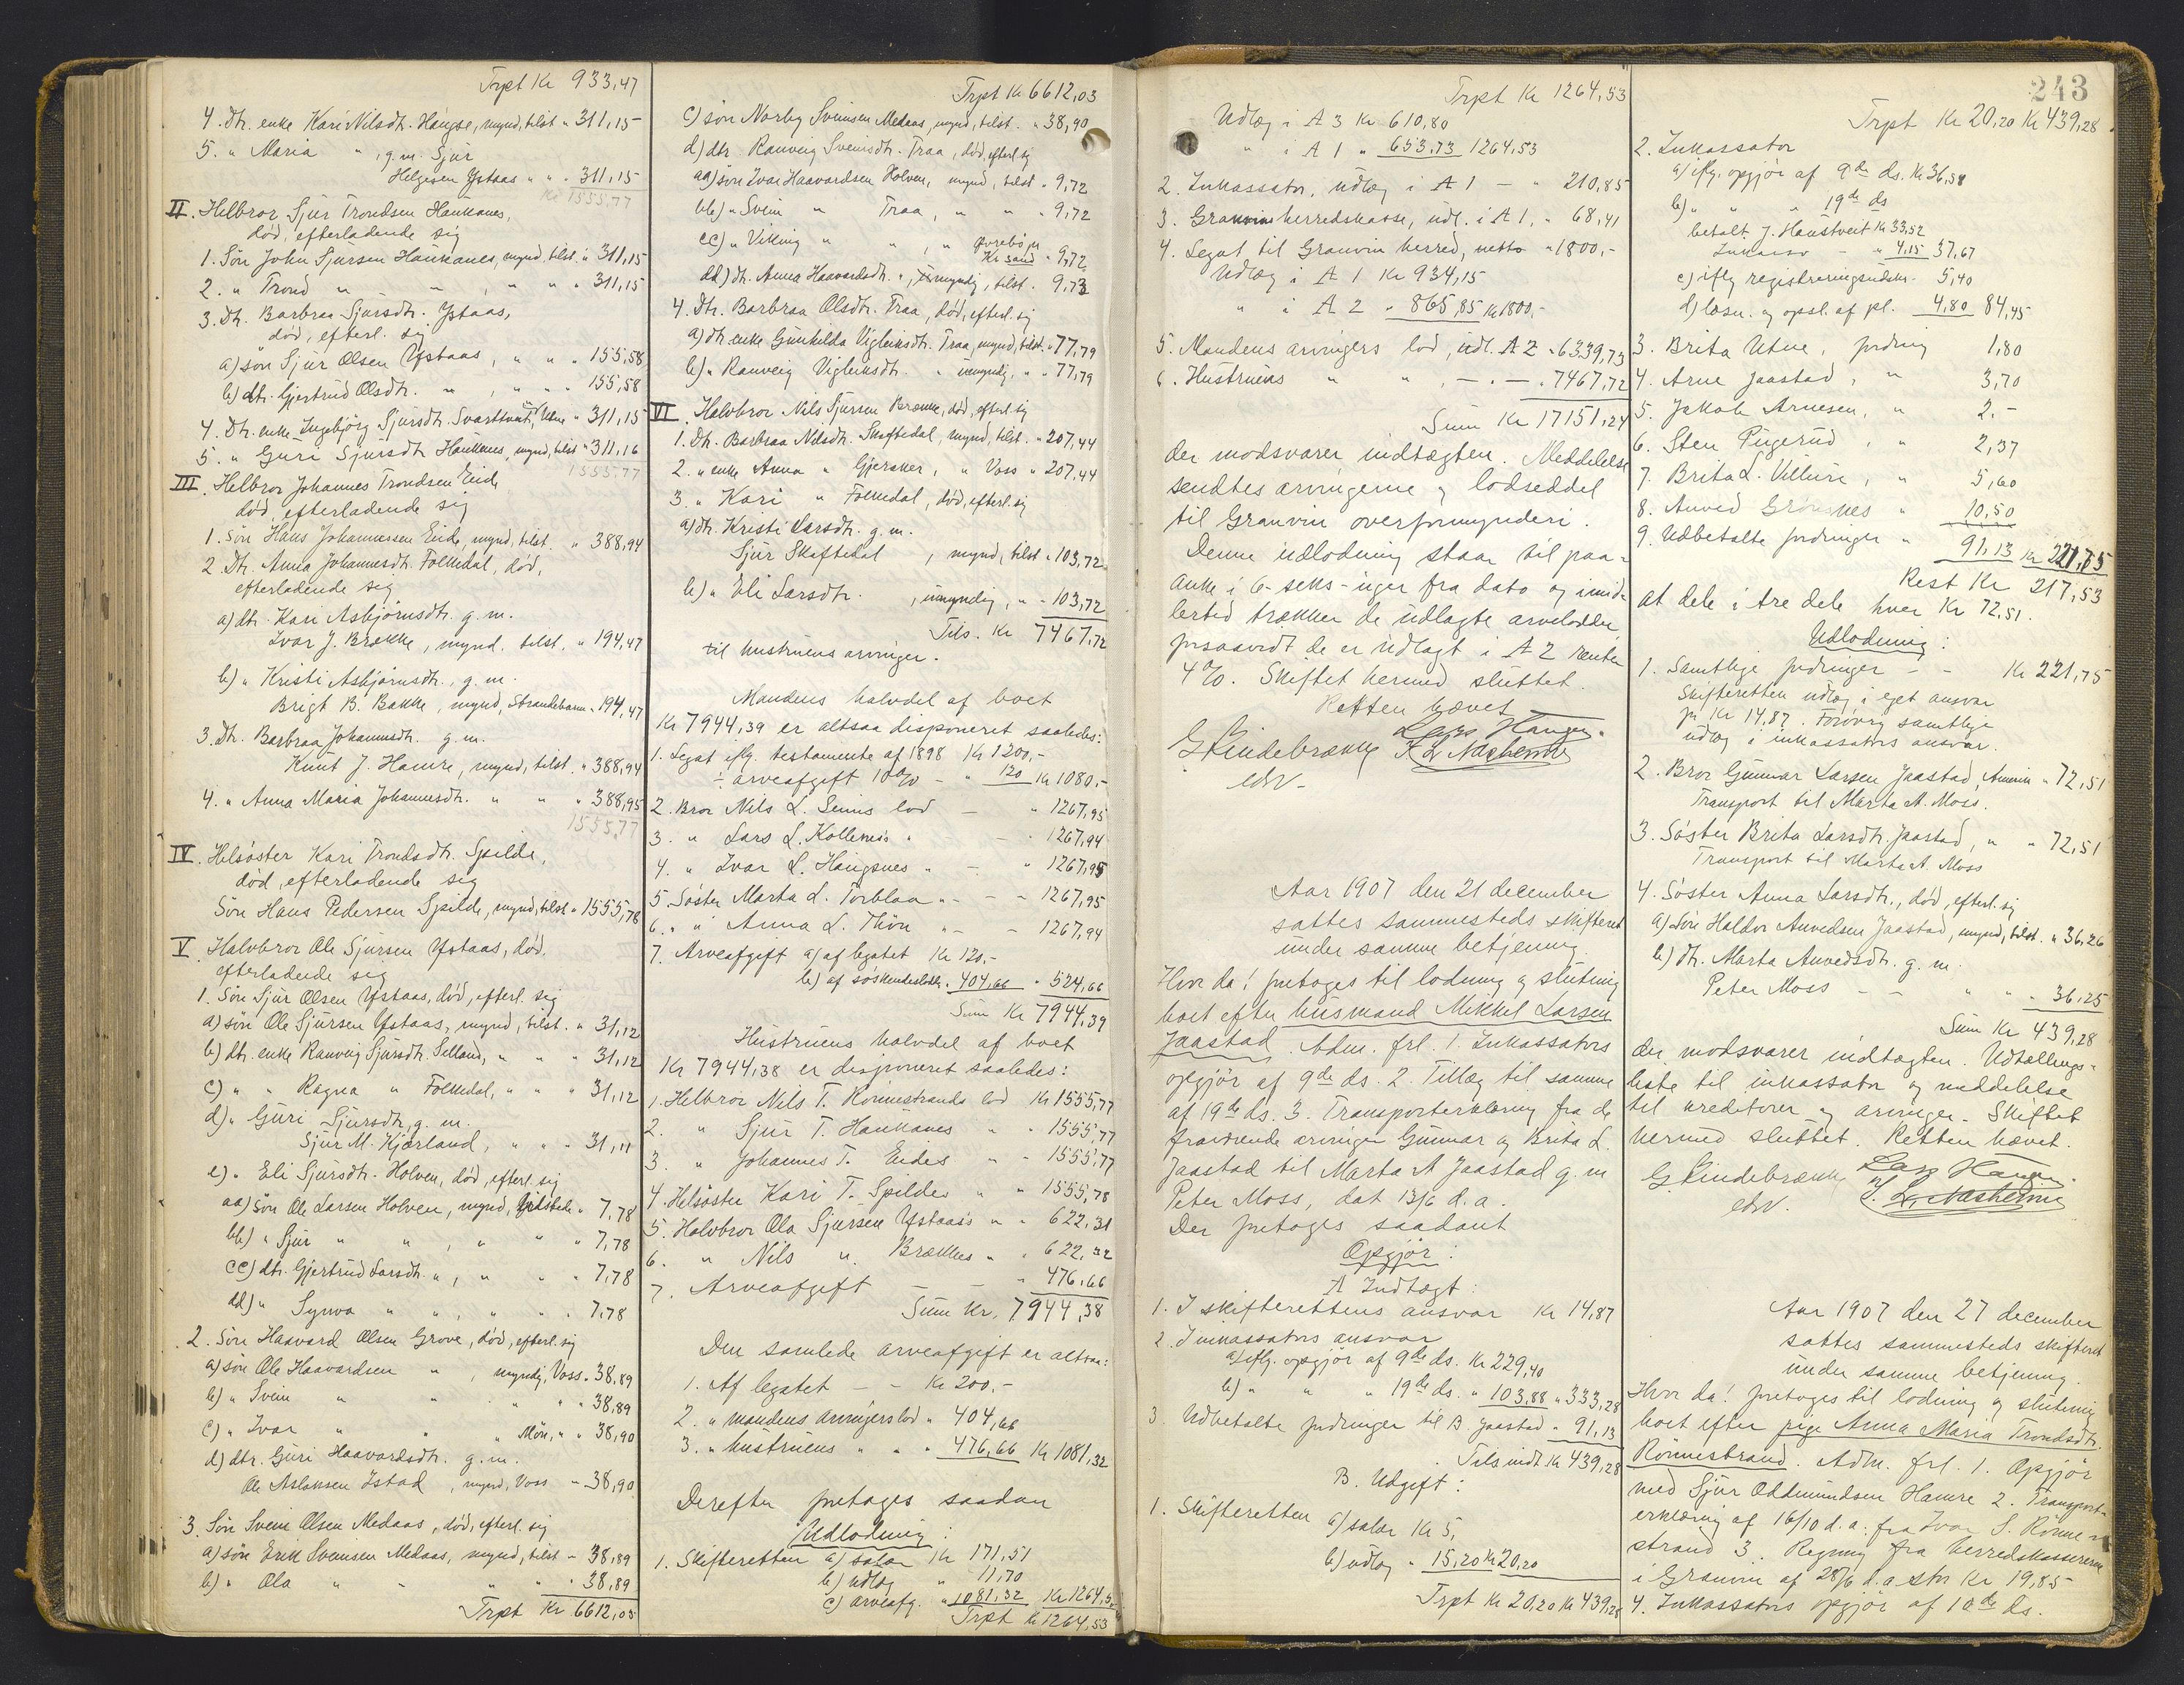 Trpt Kr 933,47
4. Dtr. enke Kari Nilsdtr. Hångse, mynd, tilst " 311,15
5. " Maria " , g.m. Sjur
Helgesen Ystaas " " " 311,15
Kr 1555,77
II. Helbror Sjur Trondsen Haukanes,
død, efterladende sig
1. Søn John Sjursen Haukanes, mynd, tilst. " 311,15
2. " Trond " " , " " " 311,15
3. Dtr. Barbraa Sjursdtr. Ystaas,
død, efterl. sig
a) søn Sjur Olsen Ystaas, " " " 155,58
b) dtr. Gjertrud Olsdtr. " , " " " 155,58
4. Dtr. enke Ingebjørg Sjursdtr. Svarttveit, Utne " 311,15
5. " Guri Sjursdtr Haukanes, mynd, tilst " 311,16
1555,77
III. Helbror Johannes Trondsen Eide
død, efterladende sig
1. Søn Hans Johannessen Eide, mynd, tilst. " 388,94
2. Dtr. Anna Johannesdtr. Folkedal, død,
efterladende sig
a) dtr. Kari Asbjørnsdtr. g.m.
Ivar J. Brække, mynd. tilst. " 194,47
b) " Kristi Asbjørnsdtr., g.m.
Brigt B. Bakke, mynd, Strandebarm " 194,47
3. Dtr. Barbraa Johannesdtr. g.m.
Knut J. Hamre, mynd, tilst. " 388,94
4. " Anna Maria Johannesdtr. " " " 388,95
1555,77
IV. Helsøster Kari Trondsdtr. Spilde,
død, efterladende sig
Søn Hans Pedersen Spilde, mynd, tilst " 1555,78
V. Halvbror Ole Sjursen Ystaas, død,
efterladende sig
1. Søn Sjur Olsen Ystaas, død, efterl. sig
a) søn Ole Sjursen Ystaas, mynd, tilst. " 31,12
b) dtr. enke Ranveig Sjursdtr. Selland, " " " 31,12
c) " " Ragna " Folkedal, " " " 31,12
d) " Guri Sjursdtr. g.m.
Sjur M. Kjærland, " " " 31,11
e) " Eli Sjursdtr. Holven, død, efterl. sig
aa) søn Ole Larsen Holven, mynd, tilstede " 7,78
bb) " Sjur " " , " " " 7,78
cc) dtr. Gjertrud Larsdtr. " , " " " 7,78
dd) " Synva " " , " " " 7,78
2. Søn Haavard Olsen Grove, død, efterl. sig
a) søn Ole Haavardsen " , myndig, Voss " 38,89
b) " Svein " " " " " 38,89
c) " Ivar " " " Møn, " " 38,90
d) dtr. Guri Haavardsdtr. g.m.
Ole Aslaksen Istad, mynd, Voss " 38,90
3. Søn Svein Olsen Medaas, død, efterl. sig
a) søn Erik Sveinsen Medaas, mynd, tilst " 38,89
b) " Ola " " " " " 38,89
Trpt Kr 6612,03
Trpt Kr 6612,03
c) søn Nordy Sveinsen Medaas, mynd, tilst. " 38,90
d) dtr. Ranveig Sveinsdtr. Traa, død, efterl. sig
aa) søn Ivar Haavardsen Holven, mynd, tilst " 9,72
bb) " Svein " Traa, " " " 9,72
cc) " Viking " " , " Øvrebø pr
Kr.sand " 9,72
dd) dtr. Anna Haavardsdtr. " , umyndig, tilst. 9,73
4. Dtr. Barbraa Olsdtr. Traa, død, efterl. sig
a) dtr. enke Gunhilda Vigleiksdtr. Traa, mynd, tilst. " 77,79
b) " Ranveig Vigleiksdtr. " umyndig, " " 77,79
VI. Halvbror Nils Sjursen Brække, død, efterl. sig
1. Dtr. Barbraa Nilsdtr. Skaftedal, mynd, tilst. " 207,44
2. " enke Anna " Gjersker, " Voss " 207,44
3. " Kari " Folkedal, død, efterl. sig
a) dtr. Kristi Larsdtr. g.m.
Sjur Skaftedal, mynd, tilst. " 103,72
b) " Eli Larsdtr. , umyndig, " " 103,72
Tils. Kr 7467,72
til hustruens arvinger.
Mandens halvdel af boet
Kr 7944,39 er altsaa disponeret saaledes:
1. Legat iflg. testamente af 1898 Kr 1200,-
÷ arveafgift 10% - " 120 Kr 1080,-
2. Bror Nils L. Seims lod - " 1267,95
3. " Lars L. Kollenes's " - " 1267,94
4. " Ivar L. Hångsnes " - " 1267,95
5. Søster Marta L. Torblaa " - - 1267,95
6. " " Anna L. Thön " - - 1267,94
7. Arveafgift a) af legatet Kr 120,-
b) af søskendelodder " 404,66 " 524,66
Sum Kr 7944,39
Hustruens halvdel af boet
Kr 7944,38 er disponeret saaledes:
1. Helbror Nils T. Rönnestrands lod Kr 1555,77
2. " Sjur T. Haukanes " " 1555,77
3. " Johannes T. Eides " " 1555,77
4. Helsøster Kari T. Spildes " " 1555,78
5. Halvbror Ola Sjursen Ystaas's " " 622,31
6. " Nils " Brækkes " " 622,32
7. Arveafgift - - " 476,66
Sum Kr. 7944,38
Den samlede arveafgift er altsaa:
1. Af legatet - - Kr 200,-
2. " mandens arvingers lod " 404,66
3. " hustruens " " " 476,66 Kr 1081,32
Derefter foretages saadan
Udlodning:
1. Skifteretten a) salar Kr 171,51
b) udlæg " 11,70
c) arveafg. " 1081,32 Kr 1264,53
Trpt Kr 1264,53
Trpt Kr 1264,53
Udlæg i A 3 Kr 610,80
" i A 1 " 653,73 1264,53
2. Inkassator, udlæg i A 1 - " 210,85
3. Granvin herredskasse, udl. i A 1, " 68,41
4. Legat til Granvin herred, netto " 1800,-
Udlæg i A 1 Kr 934,15
" i A 2 " 865,85 Kr 1800,-
5. Mandens arvingers lod, udl. A 2 " 6339,73
6. Hustruens " " , - " - " 7467,72
Sum Kr 17151,24
der modsvarer indtægten. Meddelelse
sendtes arvingerne og lodseddel
til Granvin overformynderi.
Denne udlodning staar til paa-
anke i 6-seks-uger fra dato og imid-
lertid trækker de udlagte arvelodder
forsaavidt de er udlagt i A 2 renter
4%. Skiftet hermed sluttet.
Retten hævet
G Lindebrække Lars Haugen.
edv. K L Næsheim
Aar 1907 den 21 december
sattes sammesteds skifteret
under samme betjening
Hvor da! foretoges til lodning og slutning
boet efter husmand Mikkel Larsen
Jaastad. Adm. frl. 1. Inkassators
opgjør af 9de ds. 2. Tillæg til samme
af 19de ds. 3. Transporterklæring fra de
fraværende arvinger Gunnar og Brita L.
Jaastad til Marta A Jaastad g.m
Peter Moss, dat 13/6 d.a.
Der foretoges saadant
Opgjør:
A Indtægt:
1. I skifterettens ansvar Kr 14,87
2. I inkassators ansvar
a) iflg. opgjør af 9de ds. Kr 229,40
b) " " " 19de ds. " 103,88 " 333,28
3. Udbetalte fordringer til B Jaastad " 91,13
Tils indt Kr 439,28
B. Udgift:
1. Skifteretten a) salar Kr 5,
b) udlæg " 15,20 Kr 20,20
Trpt Kr 20,20 Kr 439,28
243
Trpt Kr 20,20 Kr 439,28
2. Inkassator
a) iflg. opgjør af 9de ds. Kr 36,58
b) " " " 19de ds
betalt J. Haustveit Kr 33,52
Inkasso - " 4,15 37,67
c) iflg registreringsudskr. 5,40
d) læsn. og opsl. af pl. 4,80 84,45
3. Brita Utne, fordring 1,80
4. Arne Jaastad, " 3,70
5. Jakob Arnesen, " 2,-
6. Sten Pugerud, " 2,37
7. Brita L. Villure, " 5,60
8. Anved Grønsnes " 10,50
9. Udbetalte fordringer " 91,13 Kr 221,75
Rest Kr 217,53
at dele i tre dele hver Kr 72,51.
Udlodning:
1. Samtlige fordringer - - Kr 221,75
Skifteretten udlæg i eget ansvar
for Kr 14,87. Forøvrig samtlige
udlæg i inkassators ansvar.
2. Bror Gunnar Larsen Jaastad, Amerika " 72,51
Transport til Marta A. Moss.
3. Søster Brita Larsdtr. Jaastad, " " 72,51
Transport til Marta A. Moss
4. Søster Anna Larsdtr., død, efterl. sig
a) Søn Haldor Anvedsen Jaastad, mynd, tilst. " 36,26
b) dtr. Marta Anvedsdtr. g.m.
Peter Moss - - " " " 36,25
Sum Kr 439,28
der modsvarer indtægten. Udtællings-
liste til inkassator og meddelelse
til kreditorer og arvinger. Skiftet
hermed sluttet. Retten hævet.
G. Lindebrække Lars Haugen.
edv. L. Næsheim
Aar 1907 den 27 december
sattes sammesteds skifteret
under samme betjening.
Hvor da! foretoges til lodning og slutning
boet efter pige Anna Maria Trondsdtr.
Rönnestrand. Adm. frl. 1. Opgjør
med Sjur Oddmundsen Hamre 2. Transport-
erklæring af 16/10 d.a. fra Ivar S. Rönne-
strand 3. Regning fra herredskassereren
i Granvin af 28/6 d.a stor Kr 19,85
4. Inkassators opgjør af 10de ds.